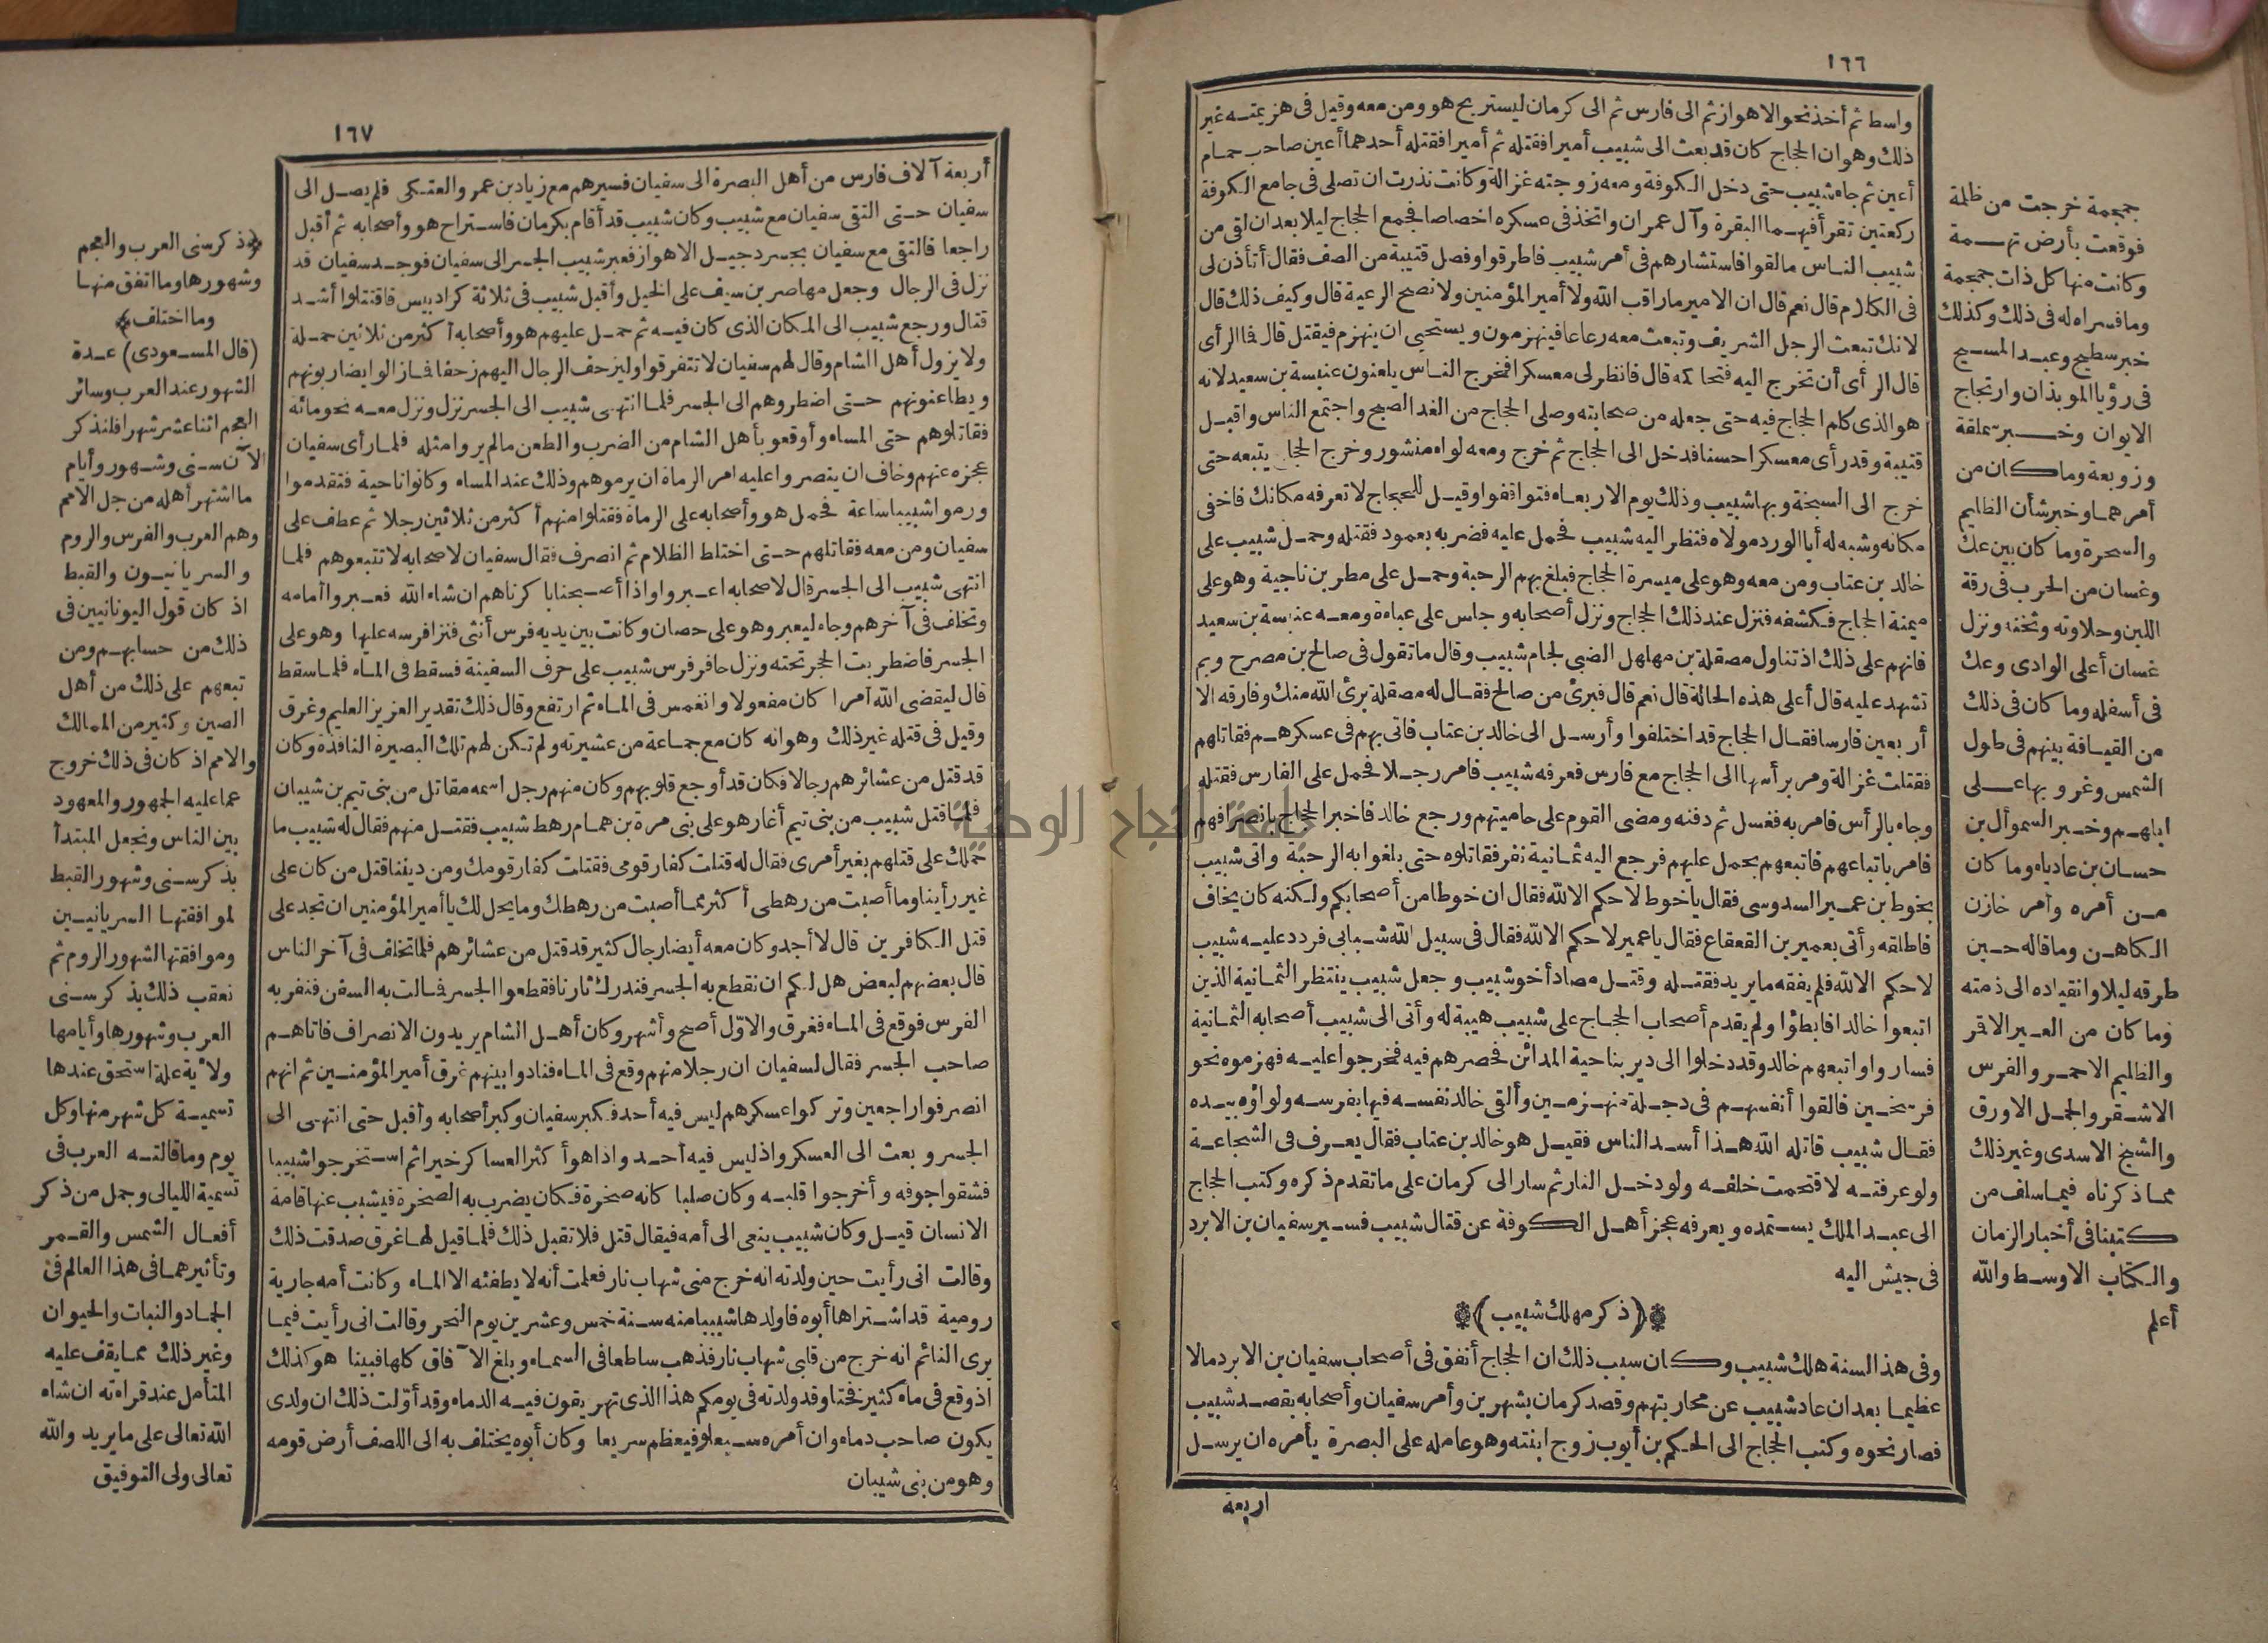 ١٦٦
واسط ثم أخذ نحو الاهواز ثم الى فارس ثم الى كرمان ليستريح هو ومن معه وقيل فى هزيمته غير
ذلك وهو ان الحجاج كان قد بعث الى شبيب أميرا فقتله ثم أميرا فقتله أحدهما أعين صاحب حمام
أعين ثم جاء شبيب حتى دخل الكوفة ومعه زوجته غزالة وكانت نذرت ان تصلى فى جامع الكوفة
ركعتين تقرأ فيهما البقرة وآل عمران واتخذ فى عسكره اخصاصا فجمع الحجاج ليلا بعد ان لقى من
شبيب الناس ما لقوا فاستشارهم فى أمر شبيب فاطرقوا وفصل قتيبة من الصف فقال أتأذن لى
فى الكلام قال نعم قال ان الامير ما راقب الله ولا أمير المؤمنين ولا نصح الرعية قال وكيف ذلك قال
لانك تبعث الرجل الشريف وتبعث معه رعاعا فينهزمون ويستحيى ان ينهزم فيقتل قال فما الرأى
قال الرأى أن تخرج اليه فتحاكمه قال فانظر لى معسكرا فخرج الناس يلعنون عنبسة بن سعيد لانه
هو الذى كلم الحجاج فيه حتى جعله من صحابته وصلى الحجاج من الغد الصبح واجتمع الناس واقبل
قتيبة وقد رأى معسكرا حسنا فدخل الى الحجاج ثم خرج ومعه لواء منشور وخرج الحجاج يتبعه حتى
خرج الى السبخة وبها شبيب وذلك يوم الاربعاء فتواقفوا وقيل للحجاج لا تعرفه مكانك فاخفى
مكانه وشبه له أبا الورد مولاه فنظر اليه شبيب فحمل عليه فضربه بعمود فقتله وحمل شبيب على
خالد بن عتاب ومن معه وهو على ميسرة الحجاج فبلغ بهم الرحبة وحمل على مطر بن ناجية وهو على
ميمنة الحجاج فكشفه فنزل عند ذلك الحجاج ونزل أصحابه وجلس على عباءة ومعه عنبسة بن سعيد
فانهم على ذلك اذ تناول مصقلة بن مهلهل الضبى لجام شبيب وقال ما تقول فى صالح بن مصرح وبم
تشهد عليه قال أعلى هذه الحالة قال نعم قال فبرئ من صالح فقال له مصقلة برئ الله منك وفارقه الا
أربعين فارسا فقال الحجاج قد اختلفوا وأرسل الى خالد بن عتاب فاتى بهم فى عسكرهم فقاتلهم
فقتلت غزالة ومر برأسها الى الحجاج مع فارس فعرفه شبيب فامر رجلا فحمل على الفارس فقتله
وجاء بالرأس فامر به فغسل ثم دفنه ومضى القوم على حاميتهم ورجع خالد فاخبر الحجاج بانصرافهم
فامر باتباعهم فاتبعهم يحمل عليهم فرجع اليه ثمانية نفر فقاتلوه حتى بلغوا به الرحبة واتى شبيب
بخوط بن عمير السدوسى فقال يا خوط لا حكم الا لله فقال ان خوطا من أصحابكم ولكنه كان يخاف
فاطلقه وأتى بعمير بن القعقاع فقال يا عمير لا حكم الا لله فقال فى سبيل الله شبابى فردد عليه شبيب
لا حكم الا لله فلم يفقه ما يريد فقتله وقتل مصاد أخو شبيب وجعل شبيب ينتظر الثمانية الذين
اتبعوا خالدا فابطؤا ولم يقدم أصحاب الحجاج على شبيب هيبة له وأتى الى شبيب أصحابه الثمانية
فساروا واتبعهم خالد وقد دخلوا الى دير بناحية المدائن فحصرهم فيه فخرجوا عليه فهزموه نحو
فرسخين فالقوا أنفسهم فى دجلة منهزمين وألقى خالد نفسه فيها بفرسه ولواؤه بيده
فقال شبيب قاتله الله هذا أسد الناس فقيل هو خالد بن عتاب فقال يعرف فى الشجاعة
ولو عرفته لاقتحمت خلفه ولو دخل النار ثم سار الى كرمان على ما تقدم ذكره وكتب الحجاج
الى عبد الملك يستمده ويعرفه عجز أهل الكوفة عن قتال شبيب فسير سفيان بن الابرد
فى جيش اليه
(ذكر مهلك شبيب)
وفى هذا السنة هلك شبيب وكان سبب ذلك ان الحجاج أنفق فى أصحاب سفيان بن الابرد مالا
عظيما بعد ان عاد شبيب عن محاربتهم وقصد كرمان بشهرين وأمر سفيان وأصحابه بقصد شبيب
فصار نحوه وكتب الحجاج الى الحكم بن أيوب زوج ابنته وهو عامله على البصرة يأمره ان يرسل
اربعة
جمجمة خرجت من ظلمة
فوقعت بأرض تهمة
وكانت منها كل ذات جمجمة
وما فسراه له فى ذلك وكذلك
خبر سطيح وعبد المسيح
فى رؤيا الموبذان وارتجاج
الايوان وخبر سملقة
وزوبعة وما كان من
أمرهما وخبر شأن الظليم
والسحرة وما كان بين عك
وغسان من الحرب فى رقة
اللبن وحلاوته وثخنه ونزل
غسان أعلى الوادى وعك
فى أسفله وما كان فى ذلك
من القيافة بينهم فى طول
الشمس وغروبها على
ابلهم وخبر السموأل بن
حسان بن عادياء وما كان
من أمره وأمر خازن
الكاهن وما قاله حين
طرقه ليلا وانقياده الى ذمته
وما كان من العير الاقر
والظليم الاحمر والفرس
الاشقر والجمل الاورق
والشيخ الاسدى وغير ذلك
مما ذكرناه فيما سلف من
كتبنا فى أخبار الزمان
والكتاب الاوسط والله
أعلم
١٦٧
أربعة آلاف فارس من أهل البصرة الى سفيان فسيرهم مع زياد بن عمرو العتكى فلم يصل الى
سفيان حتى التقى سفيان مع شبيب وكان شبيب قد أقام بكرمان فاستراح هو وأصحابه ثم أقبل
راجعا فالتقى مع سفيان بجسر دجيل الاهواز فعبر شبيب الجسر الى سفيان فوجد سفيان قد
نزل فى الرجال وجعل مهاصر بن سيف على الخيل وأقبل شبيب فى ثلاثة كراديس فاقتتلوا أشد
قتال ورجع شبيب الى المكان الذى كان فيه ثم حمل عليهم هو وأصحابه أكثر من ثلاثين حملة
ولا يزول أهل الشام وقال لهم سفيان لا تتفرقوا وليزحف الرجال اليهم زحفا فما زالوا يضاربونهم
ويطاعنونهم حتى اضطروهم الى الجسر فلما انتهى شبيب الى الجسر نزل ونزل معه نحو مائة
فقاتلوهم حتى المساء وأوقعوا بأهل الشام من الضرب والطعن ما لم يروا مثله فلما رأى سفيان
عجزه عنهم وخاف ان ينصروا عليه امر الرماة ان يرموهم وذلك عند المساء وكانوا ناحية فتقدموا
ورموا شبيبا ساعة فحمل هو وأصحابه على الرماة فقتلوا منهم أكثر من ثلاثين رجلا ثم عطف على
سفيان ومن معه فقاتلهم حتى اختلط الظلام ثم انصرف فقال سفيان لاصحابه لا تتبعوهم فلما
انتهى شبيب الى الجسر قال لاصحابه اعبروا واذا أصبحنا باكرناهم ان شاء الله فعبروا أمامه
وتخلف فى آخرهم وجاء ليعبر وهو على حصان وكانت بين يديه فرس أنثى فنزا فرسه عليها وهو على
الجسر فاضطربت الحجر تحته ونزل حافر فرس شبيب على حرف السفينة فسقط فى الماء فلما سقط
قال ليقضى الله أمرا كان مفعولا وانغمس فى الماء ثم ارتفع وقال ذلك تقدير العزيز العليم وغرق
وقيل فى قتله غير ذلك وهو انه كان مع جماعة من عشيرته ولم تكن لهم تلك البصيرة النافذة وكان
قد قتل من عشائرهم رجالا فكان قد أوجع قلوبهم وكان منهم رجل اسمه مقاتل من بنى تيم بن شيبان
فلما قتل شبيب من بنى تيم أغار هو على بنى مرة بن همام رهط شبيب فقتل منهم فقال له شبيب ما
حملك على قتلهم بغير أمرى فقال له قتلت كفار قومى فقتلت كفار قومك ومن ديننا قتل من كان على
غير رأينا وما أصبت من رهطى أكثر مما أصبت من رهطك وما يحل لك يا أمير المؤمنين ان تجد على
قتل الكافرين قال لا أجد وكان معه أيضا رجال كثير قد قتل من عشائرهم فلما تخلف فى آخر الناس
قال بعضهم لبعض هل لكم ان نقطع به الجسر فندرك ثارنا فقطعوا الجسر فمالت به السفن فنفر به
الفرس فوقع فى الماء فغرق والاوّل أصح وأشهر وكان أهل الشام يريدون الانصراف فاتاهم
صاحب الجسر فقال لسفيان ان رجلا منهم وقع فى الماء فنادوا بينهم غرق أمير المؤمنين ثم انهم
انصرفوا راجعين وتركوا عسكرهم ليس فيه أحد فكبر سفيان وكبر أصحابه وأقبل حتى انتهى الى
الجسر وبعث الى العسكر واذ ليس فيه أحد واذا هو أكثر العساكر خيرا ثم استخرجوا شبيبا
فشقوا جوفه وأخرجوا قلبه وكان صلبا كانه صخرة فكان يضرب به الصخرة فيشب عنها قامة
الانسان قيل وكان شبيب ينعى الى أمه فيقال قتل فلا تقبل ذلك فلما قيل لها غرق صدقت ذلك
وقالت انى رأيت حين ولدته انه خرج منى شهاب نار فعلمت أنه لا يطفئه الا الماء وكانت أمه جارية
رومية قد اشتراها أبوه فاولدها شبيبا منه سنة خمس وعشرين يوم النحر وقالت انى رأيت فيما
يرى النائم انه خرج من قلبى شهاب نار فذهب ساطعا فى السماء وبلغ الآفاق كلها فبينا هو كذلك
اذ وقع فى ماء كثير فخبا وقد ولدته فى يومكم هذا الذى تهريقون فيه الدماء وقد أوّلت ذلك ان ولدى
يكون صاحب دماء وان أمره سيعلو فيعظم سريعا وكان أبوه يختلف به الى اللصف أرض قومه
وهو من بنى شيبان
﴿ذكر سنى العرب والعجم
وشهورها وما اتفق منها
وما اختلف﴾
(قال المسعودى) عدة
الشهور عند العرب وسائر
العجم اثنا عشر شهرا فلنذكر
الآن سنى وشهور وأيام
ما اشتهر أهله من جل الامم
وهم العرب والفرس والروم
والسريانيون والقبط
اذ كان قول اليونانيين فى
ذلك من حسابهم ومن
تبعهم على ذلك من أهل
الصين وكثير من الممالك
والامم اذ كان فى ذلك خروج
عما عليه الجمهور والمعهود
بين الناس ونجعل المبتدأ
بذكر سنى وشهور القبط
لموافقتها السريانيين
وموافقتها الشهور الروم ثم
نعقب ذلك بذكر سنى
العرب وشهورها وأيامها
ولاية علة استحق عندها
تسمية كل شهر منها وكل
يوم وما قالته العرب فى
تسمية الليالى وجمل من ذكر
أفعال الشمس والقمر
وتأثيرهما فى هذا العالم فى
الجماد والنبات والحيوان
وغير ذلك مما يقف عليه
المتأمل عند قراءته ان شاء
الله تعالى على ما يريد والله
تعالى ولى التوفيق
جامعة النجاح الوطنية